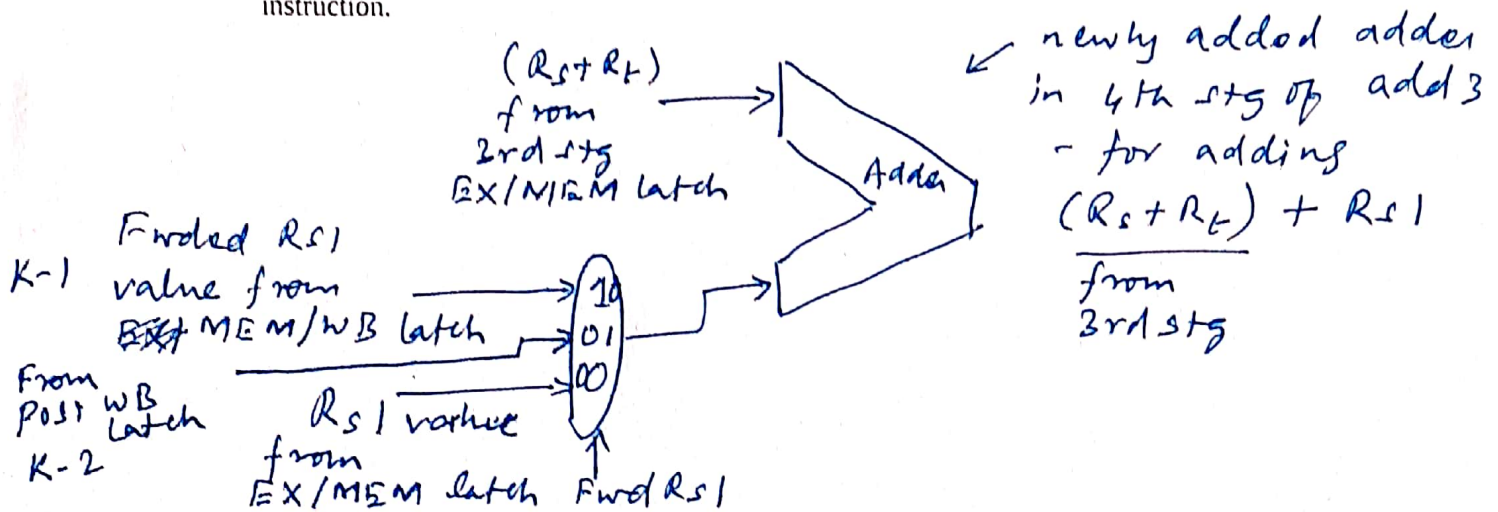 instruction.
(Rs + Rt)
from
3rd stg
EX/MEM latch
newly added adder
in 4th stg of add3
- for adding
(Rs + Rt) + Rs1
from
3rd stg
Adder
Fwded Rs1
K-1 value from
MEM/WB latch
10
01
00
From
Post WB
Latch
K-2
Rs1 value
from
EX/MEM latch
Fwd Rs1